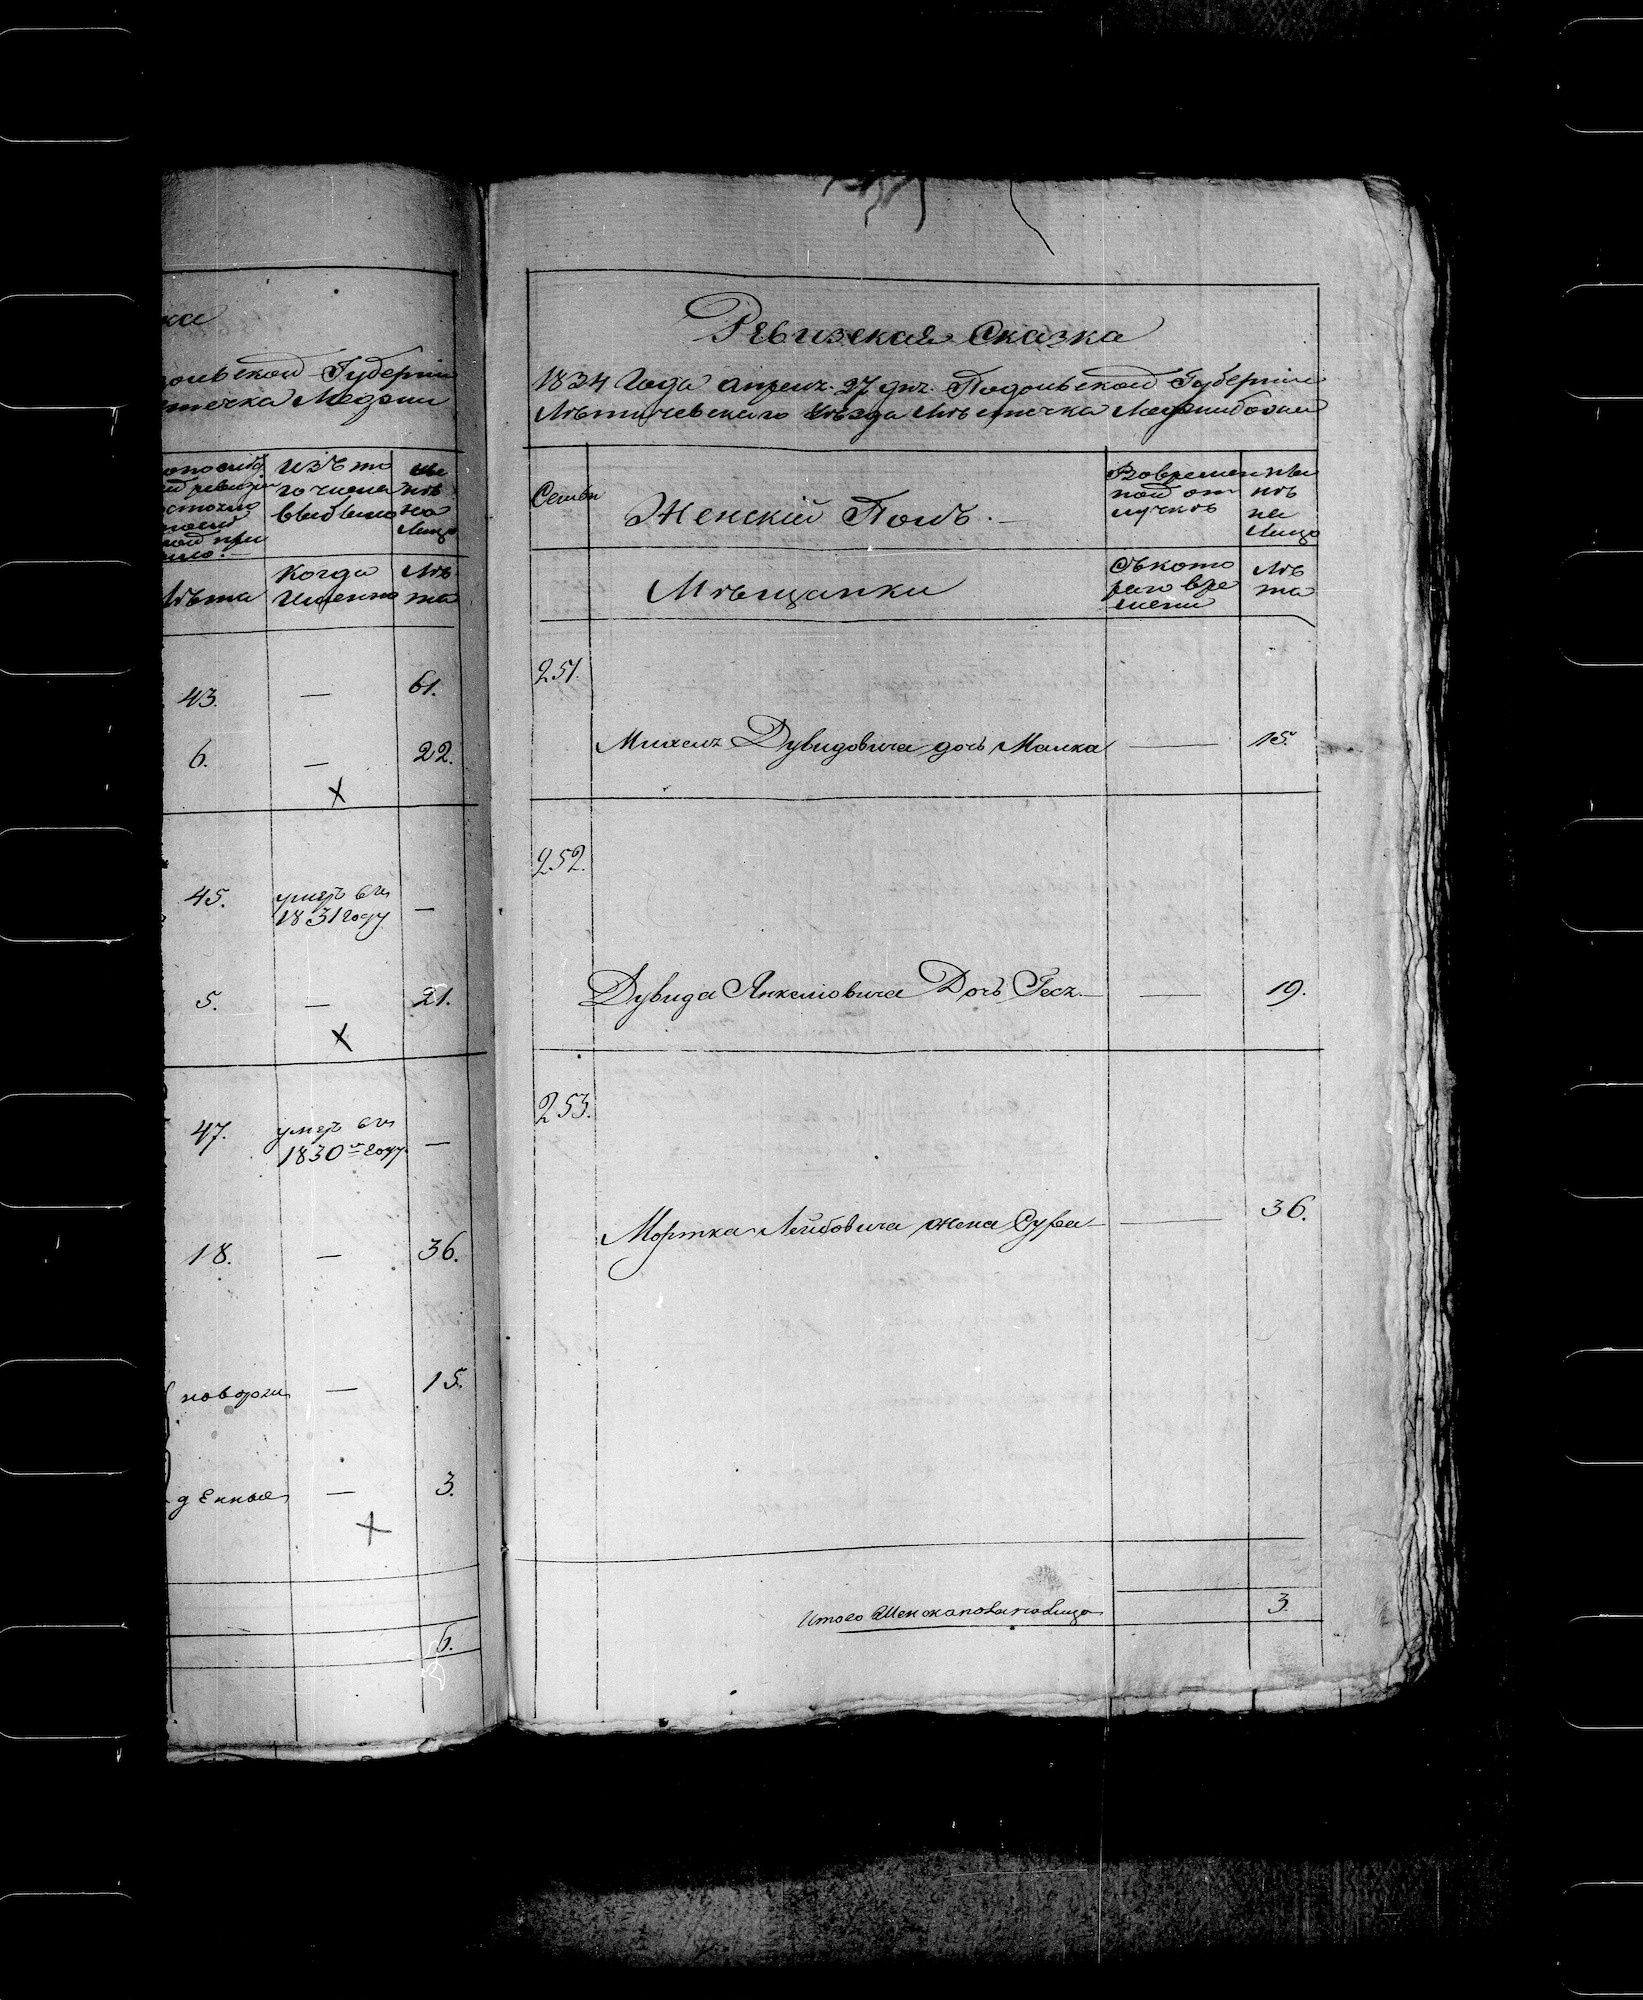 ка
Губерніи
течка Меджи
изъ то
го числа
выбыло
ны
нѣ
на
лицо
Лѣта
Когда
Именно
Лѣ
та
43. — 61.
6. — 22.
х
45. умеръ въ
1831 году —
5. — 21.
х
47. умеръ въ
1830м году —
18. — 36.
новорж — 15.
денные — 3.
х
5.
Ревизская Сказка
1834 Года апреля 27 дня. Подольской Губерніи
Лѣтичевскаго уѣзда Мѣстечка Меджибожа
Семьи
Женскій Полъ. —
Вовремен
ной от
лучкѣ
ны
нѣ
на
Лицо
Мѣщанки
Съкото
раго вре
мени
Лѣ
та
251.
Дувидовича дочь Малка — 15.
252.
Дувида Янкелiовича Дочь — 19.
253.
Мортка Лейбовича жена Сура — 36.
Итого женска пола налицо 3.